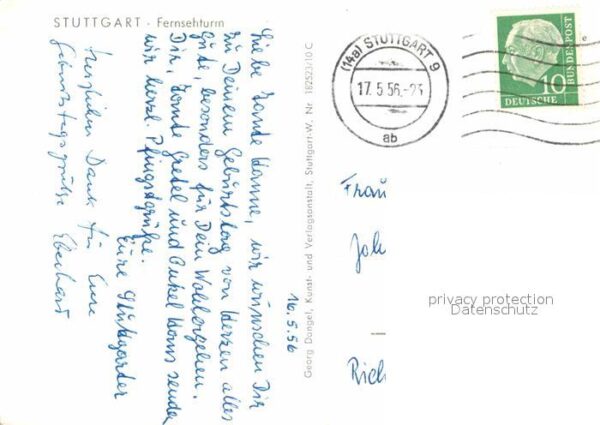 STUTTGART · Fernsehturm
Liebe Tante Hanne, wir wünschen Dir
zu Deinem Geburtstag von Herzen alles
Gute, besonders für Dein Wohlergehen.
Dir, Tante Gretel und Onkel Hans senden
wir herzl. Pfingstgrüße.
Eure Stuttgarter
Herzlichen Dank für Eure
Geburtstagsgrüße Eberhard
16.5.56
Georg Dangel, Kunst- und Verlagsanstalt, Stuttgart-W, Nr. 182523/10 C
(14a) STUTTGART 9
17.5.56.-23
ab
10
DEUTSCHE
BUNDESPOST
Frau
Joh
Rich
privacy protection
Datenschutz